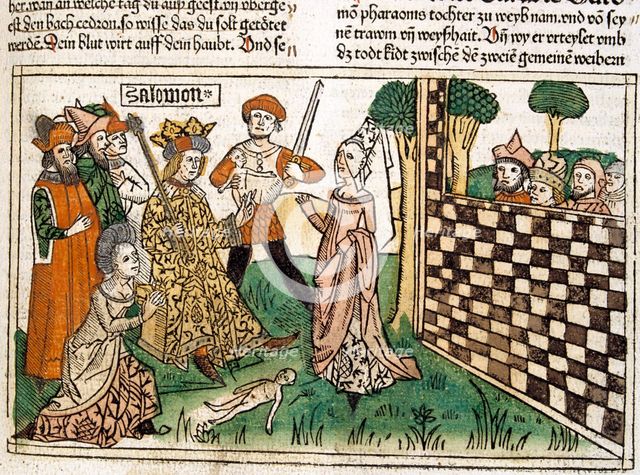 her. wan an welche tag du auß geest. vñ vberge
est den bach cedron. so wisse das du solt getötet
werdē. Dein blut wirt auff dein haubt. Und se
mō pharaonis tochter zu weyb nam. vnd võ sey
nem trawm vñ weyßhait. Uñ wy er vrteylet vmb
dz todt kidt zwischē dē zweiē gemeinē weibern
Salomon
Heritage
Heritage
Heritage